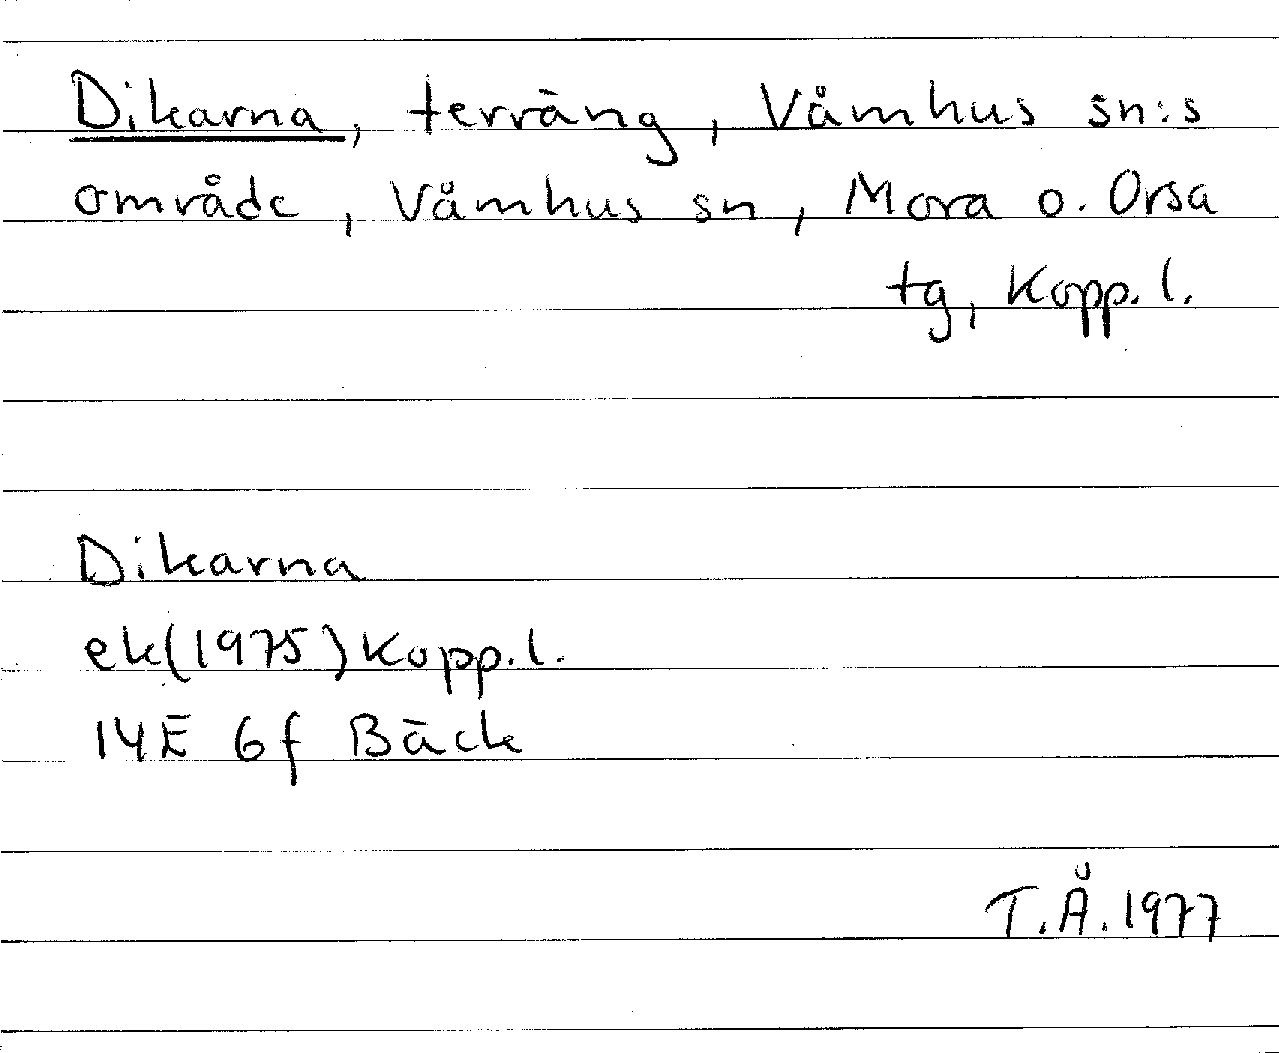 Dikarna, terräng, Våmhus sn:s
område, Våmhus sn, Mora o. Orsa
tg, Kopp. l.
Dikarna
ek(1975) Kopp. l.
14E 6f Bäck
T.Å. 1977